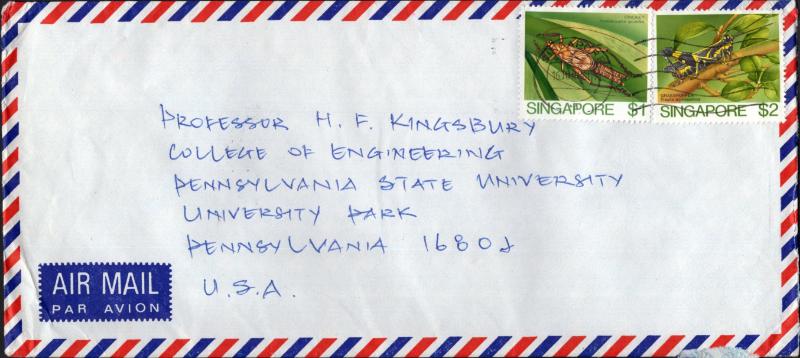 CRICKET
SINGAPORE $1
GRASSHOPPER
SINGAPORE $2
PROFESSOR H. F. KINGSBURY
COLLEGE OF ENGINEERING
PENNSYLVANIA STATE UNIVERSITY
UNIVERSITY PARK
PENNSYLVANIA 16802
U.S.A.
AIR MAIL
PAR AVION